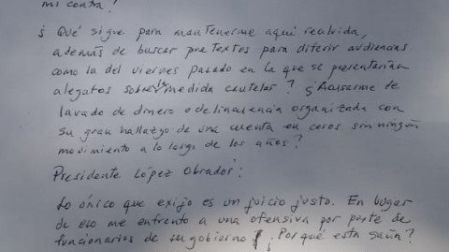 mi contra?
¿ Qué sigue para mantenerme aquí recluida,
además de buscar pretextos para diferir audiencias
como la del viernes pasado en la que se presentarían
alegatos sobre la medida cautelar? ¿Acusarme de
lavado de dinero o delincuencia organizada con
su gran hallazgo de una cuenta en ceros sin ningún
movimiento a lo largo de los años?
Presidente López Obrador:
Lo único que exijo es un juicio justo. En lugar
de eso me enfrento a una ofensiva por parte de
funcionarios de su gobierno. ¿Por qué esta saña?